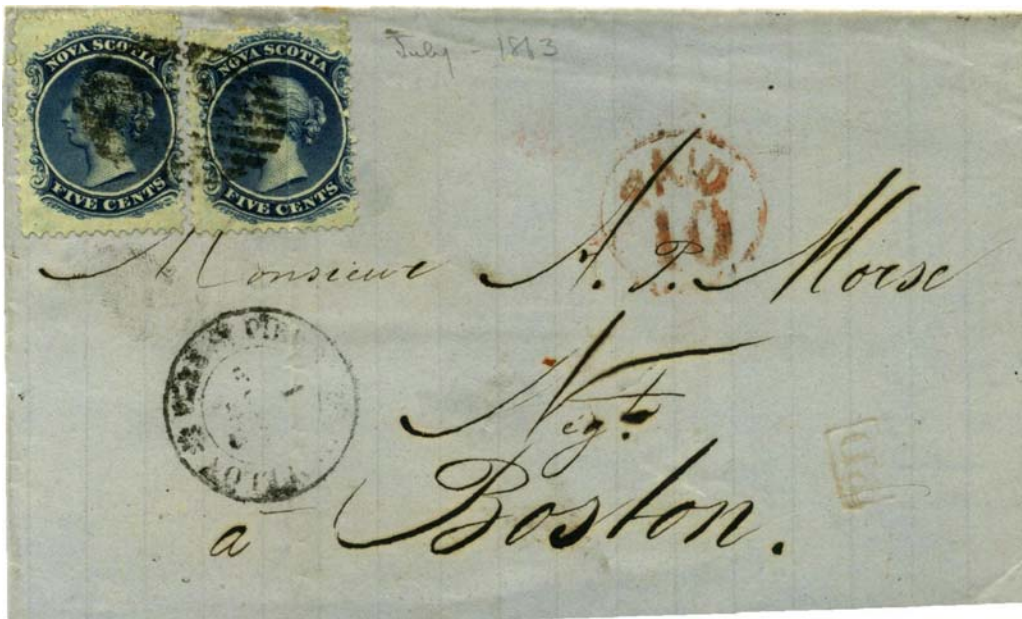 NOVA SCOTIA
FIVE CENTS
NOVA SCOTIA
FIVE CENTS
July - 1863
PAID
10
Monsieur A. P. Morse
Negt.
a Boston.